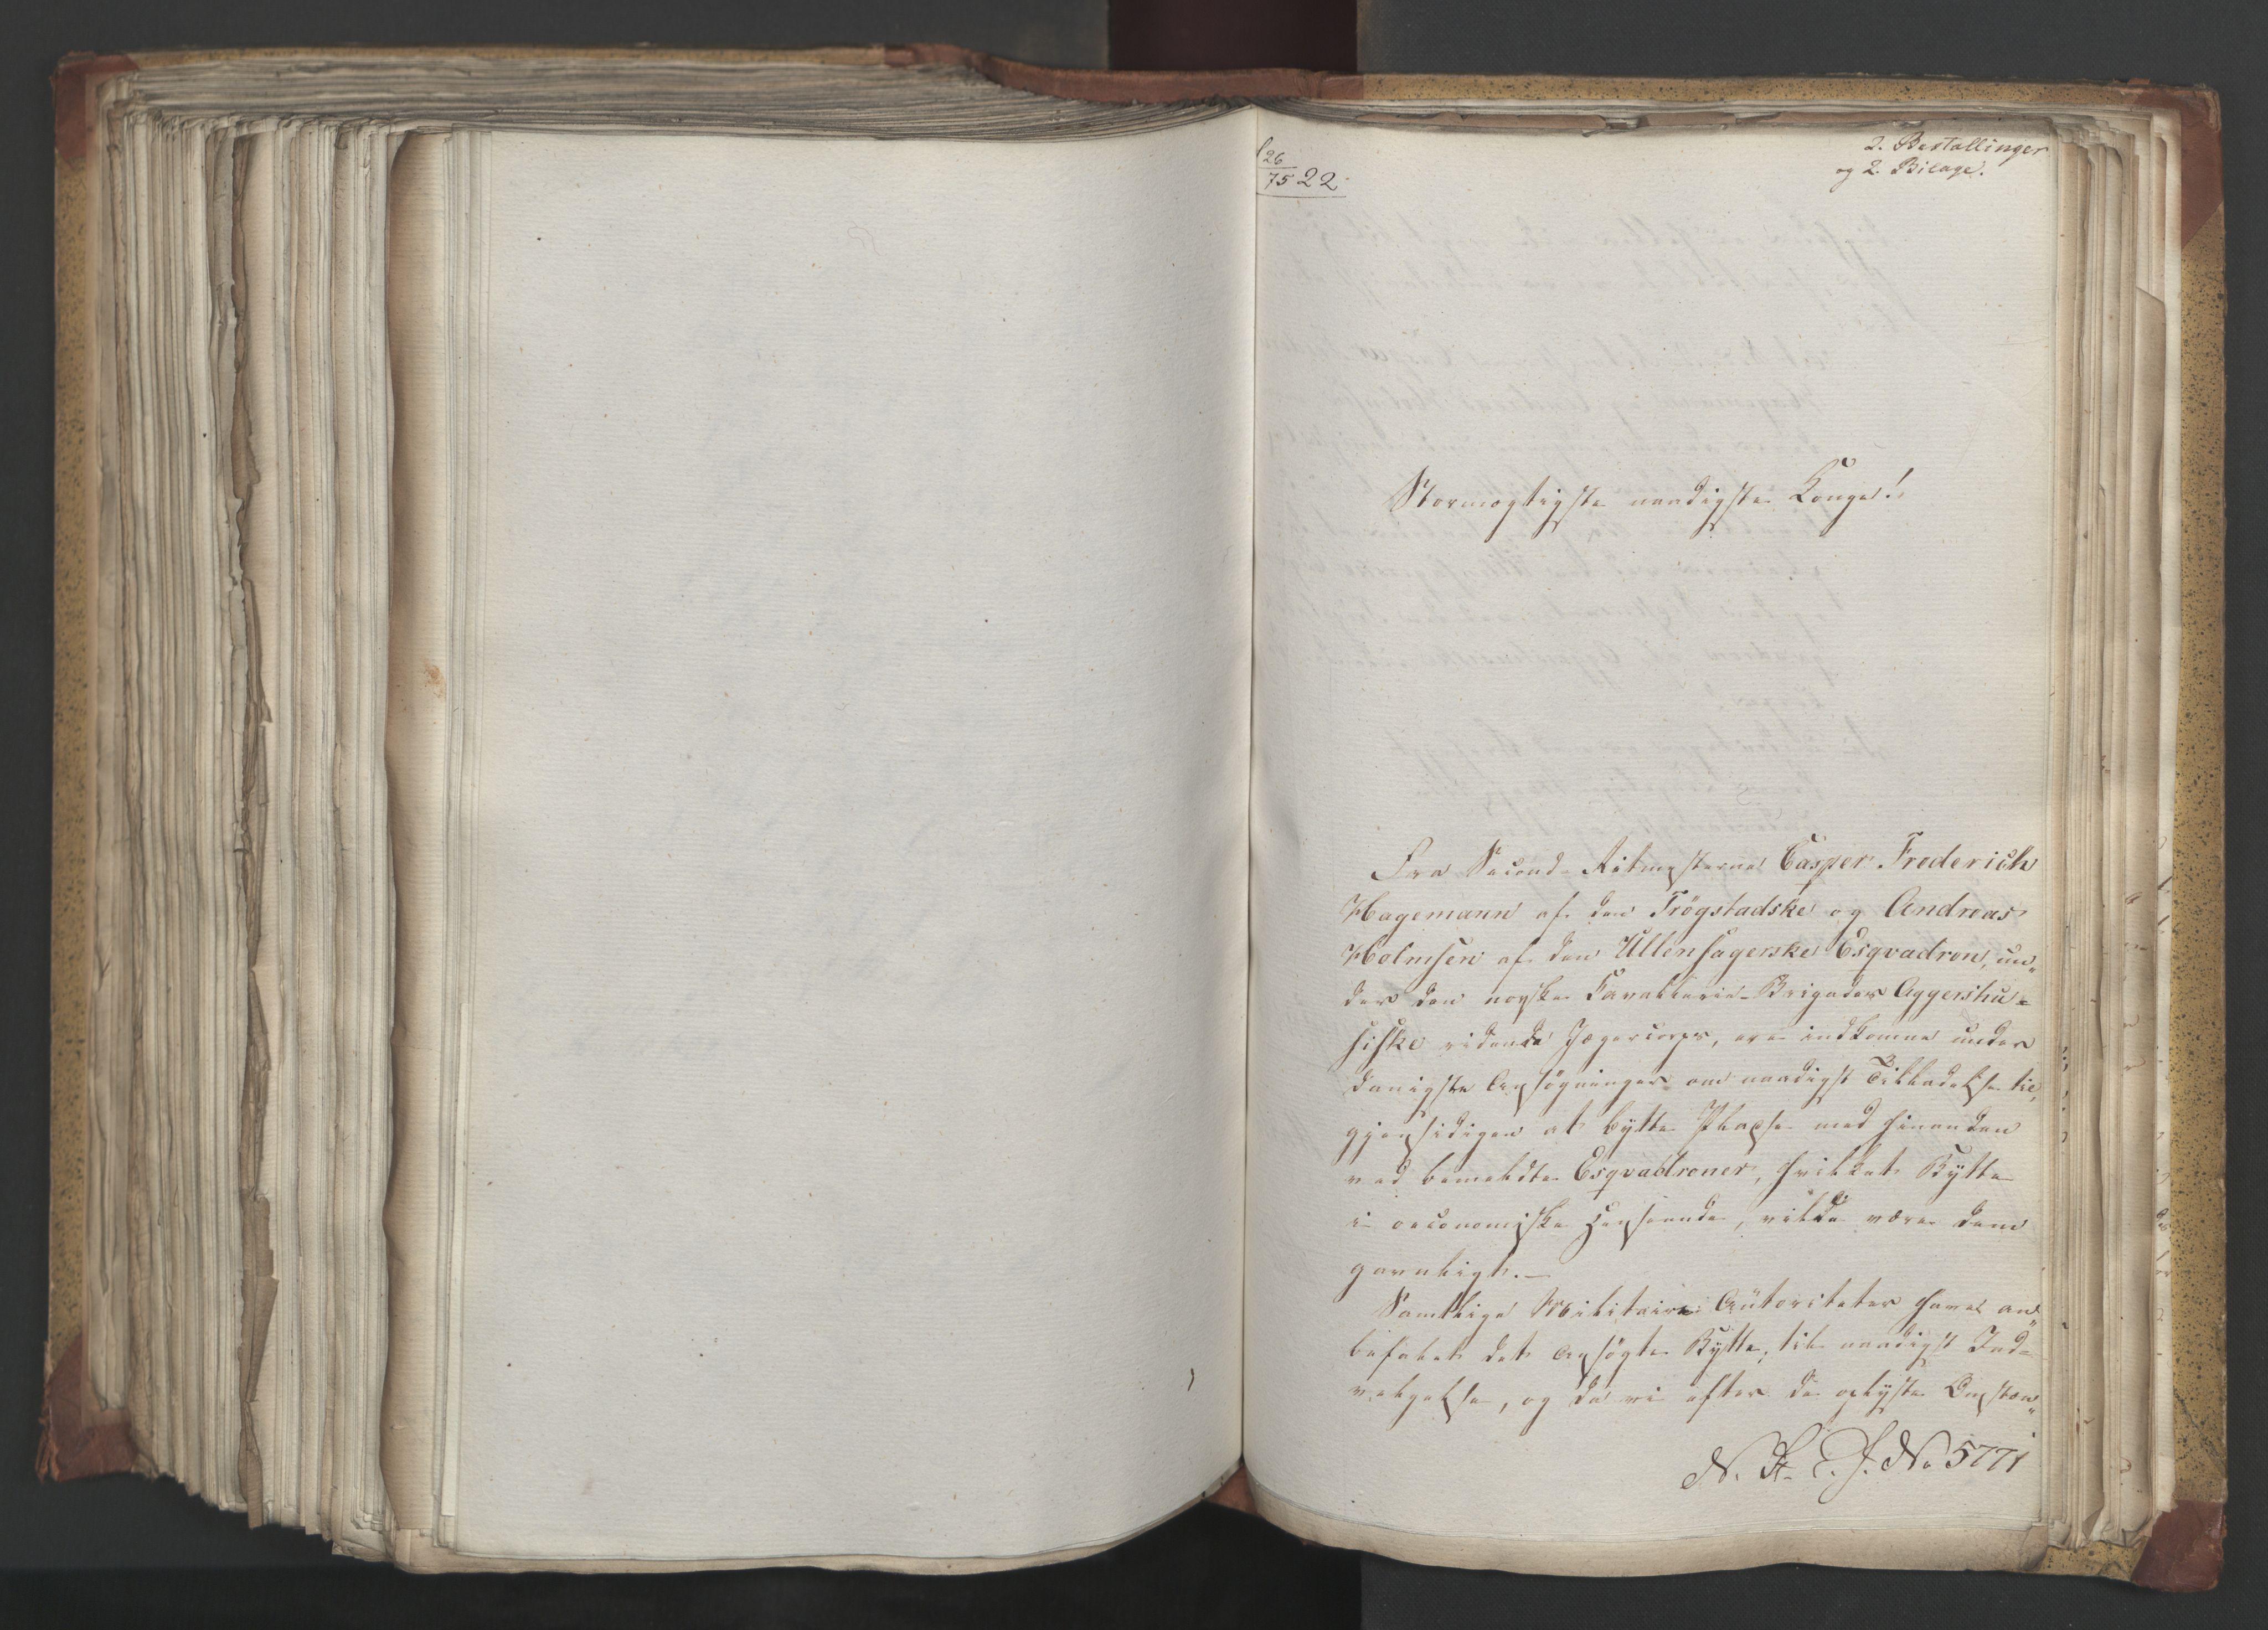 26
75 22.
2. Bestallinger
og 2. Bilage.
Stormægtigste naadigste Konge!
Fra Second-Ritmesterne Casper Frederich
Hagemann af den Trögstadske og Andreas
Holmsen af den Ullensagerske Esqvadron, un„
der den norske Cavallerie-Brigades Aggershu=
siske ridende Jægercorps, ere indkomne under
danigste Ansøgninger om naadigst Tilladelse til,
gjensidigen at bytte Pladse med hinanden
ved bemeldte Esqvadroner, hvilket Bytte
i oeconomiske Henseende, vilde være dem
gavnligt.—
Samtlige Militaire Autoriteter have an„
befalet det ansøgte Bytte, til naadigst Ind=
vilgelse, og da vi efter de oplyste Omstæn„
N. No 5771